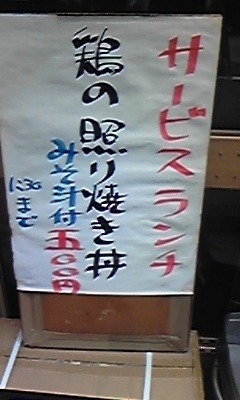 サービスランチ
鶏の照り焼き丼
みそ汁付五〇〇円
1:30まで